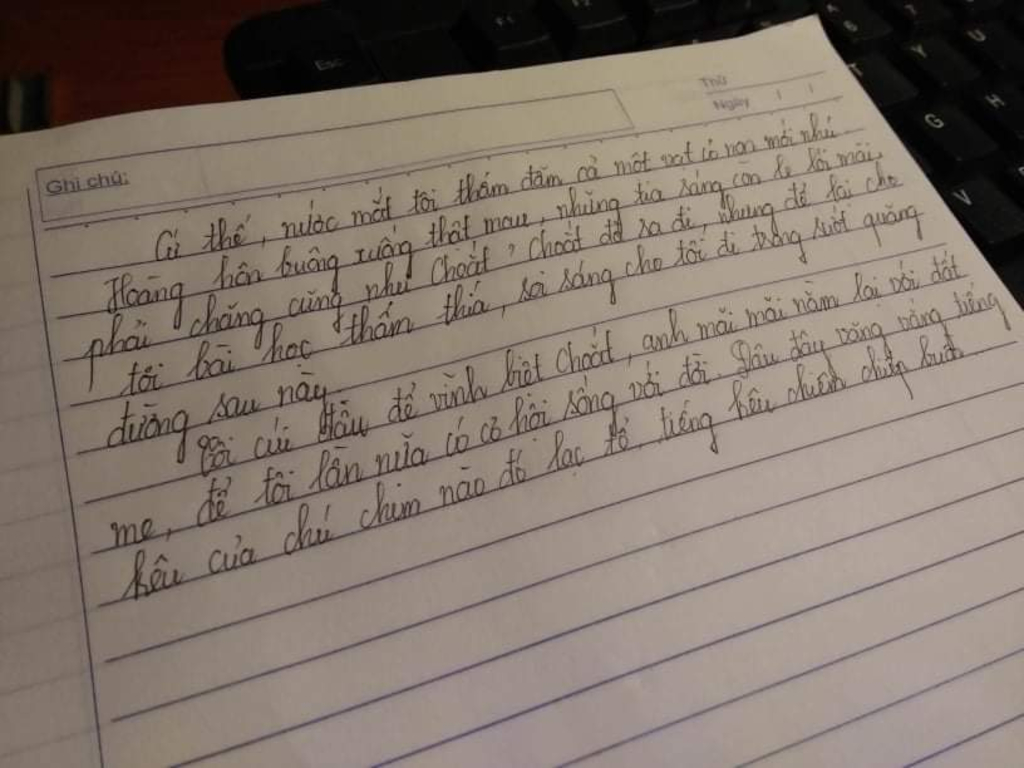 Esc F1 F2
T Y U
G H
V
Thứ
Ngày / /
Ghi chú:
Cứ thế, nước mắt tôi thấm đẫm cả một vạt cỏ non mới nhú.
Hoàng hôn buông xuống thật mau, những tia sáng còn le lói mãi,
phải chăng cũng như Choắt, Choắt đã ra đi, nhưng để lại cho
tôi bài học thấm thía, soi sáng cho tôi đi trong suốt quãng
đường sau này.
Tôi cúi đầu để vĩnh biệt Choắt, anh mãi mãi nằm lại với đất
mẹ, để tôi lần nữa có cơ hội sống với đời. Đâu đây văng vẳng tiếng
kêu của chú chim nào đó lạc tổ, tiếng kêu chiêm chiếp buồn